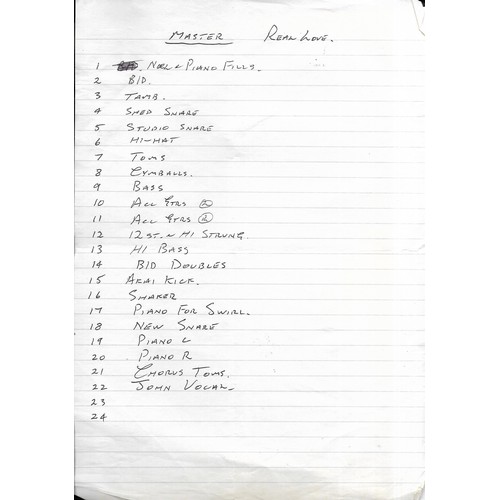 MASTER REAL LOVE.
1 NOEL & PIANO FILLS.
2 B/D.
3 TAMB.
4 SHED SNARE
5 STUDIO SNARE
6 HI-HAT
7 TOMS
8 CYMBALLS.
9 BASS
10 ALL GTRS L
11 ALL GTRS R
12 12 ST. ~ HI STRUNG.
13 HI BASS
14 B/D DOUBLES
15 AKAI KICK.
16 SHAKER
17 PIANO FOR SWIRL.
18 NEW SNARE
19 PIANO L
20 PIANO R
21 CHORUS TOMS.
22 JOHN VOCAL.
23
24